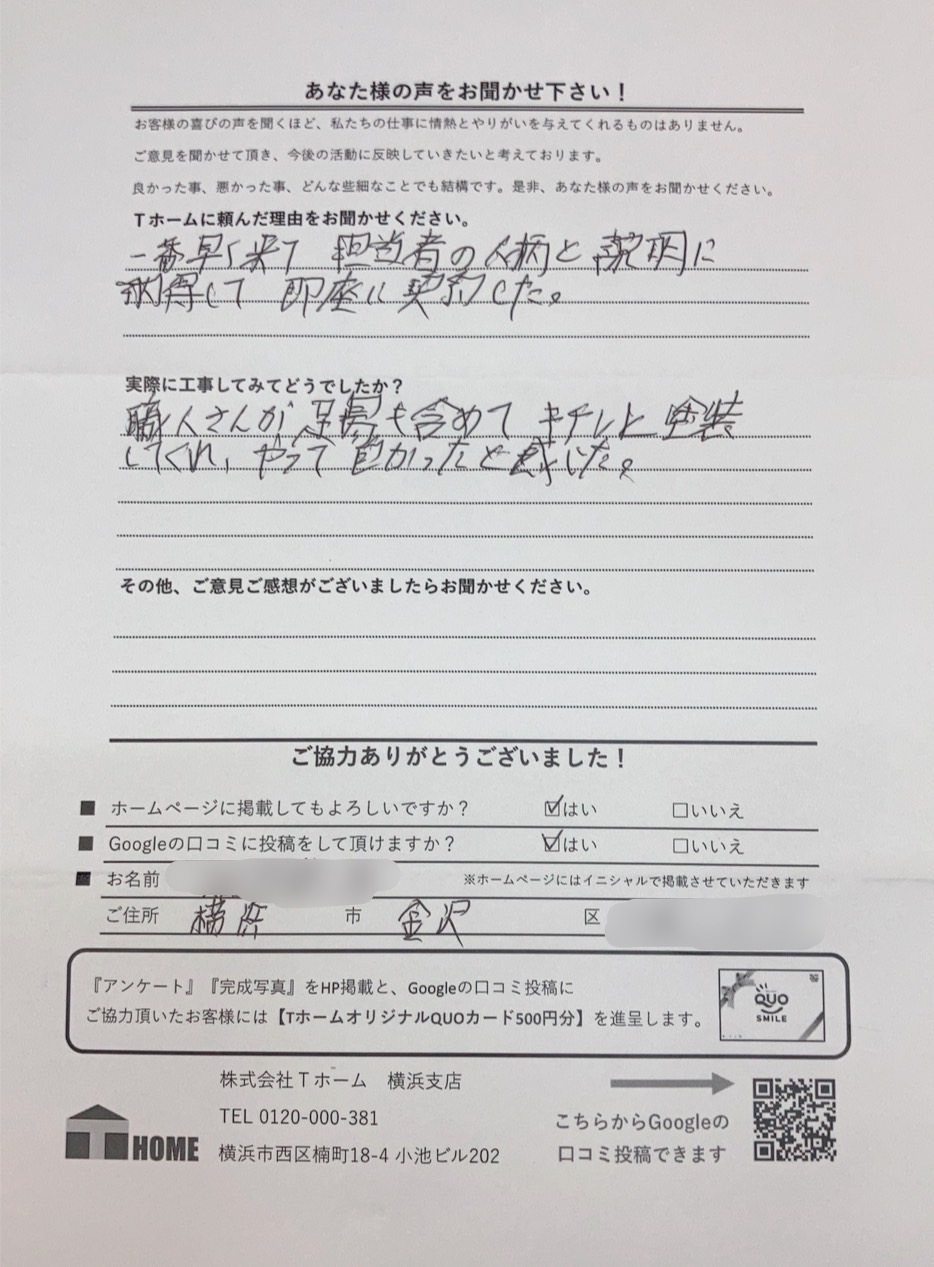 あなた様の声をお聞かせ下さい！
お客様の喜びの声を聞くほど、私たちの仕事に情熱とやりがいを与えてくれるものはありません。
ご意見を聞かせて頂き、今後の活動に反映していきたいと考えております。
良かった事、悪かった事、どんな些細なことでも結構です。是非、あなた様の声をお聞かせください。
Tホームに頼んだ理由をお聞かせください。
一番早く来て 担当者の人柄と説明に
納得して 即座に契約した。
実際に工事してみてどうでしたか？
職人さんが足場も含めて キチンと塗装
してくれ、やって良かったと感じた。
その他、ご意見ご感想がございましたらお聞かせください。
ご協力ありがとうございました！
■ ホームページに掲載してもよろしいですか？ ☑はい □いいえ
■ Googleの口コミに投稿をして頂けますか？ ☑はい □いいえ
■ お名前 ※ホームページにはイニシャルで掲載させていただきます
ご住所 横浜 市 金沢 区
『アンケート』『完成写真』をHP掲載と、Googleの口コミ投稿に
ご協力頂いたお客様には【TホームオリジナルQUOカード500円分】を進呈します。
QUO
SMILE
株式会社Tホーム 横浜支店
TEL 0120-000-381
横浜市西区楠町18-4 小池ビル202
HOME
こちらからGoogleの
口コミ投稿できます